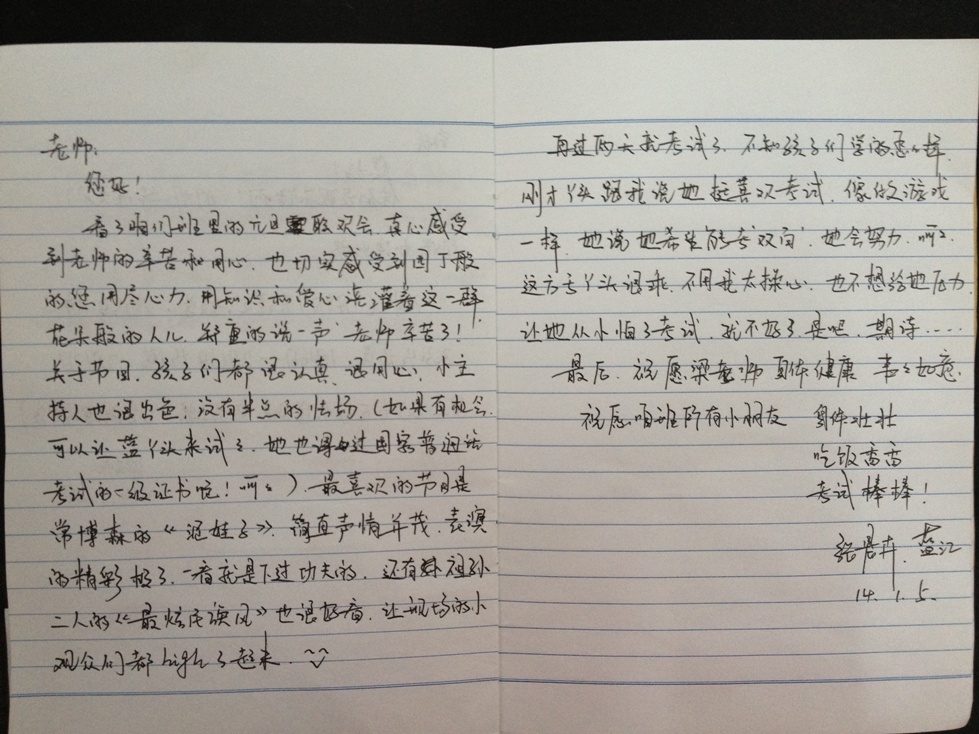 老师:
您好!
看了咱们班里的元旦联欢会,真心感受
到老师的辛苦和用心,也切实感受到园丁般
的您用尽心力,用知识和爱心浇灌着这一群
花朵般的人儿,郑重的说一声"老师辛苦了!
关于节目,孩子们都很认真、很用心,小主
持人也很出色,没有半点的怯场,(如果有机会,
可以让蓝丫头来试试,她也得过国家普通话
考试的一级证书呢!呵呵)。最喜欢的节目是
常博森的《泥娃子》,简直声情并茂,表演
的精彩极了,一看就是下过功夫的,还有祖孙
二人的《最炫民族风》也很好看,让现场的小
观众们都high了起来.
再过两天就考试了,不知孩子们学的怎么样,
刚才丫头跟我说她挺喜欢考试,像做游戏
一样,她说她希望能考"双百",她会努力,呵呵,
这方面丫头很乖,不用我太操心,也不想给她压力,
让她从小怕了考试,就不好了是吧,期待……
最后,祝愿梁老师身体健康 事事如意,
祝愿咱班所有小朋友 身体壮壮
吃饭香香
考试棒棒!
14.1.5.